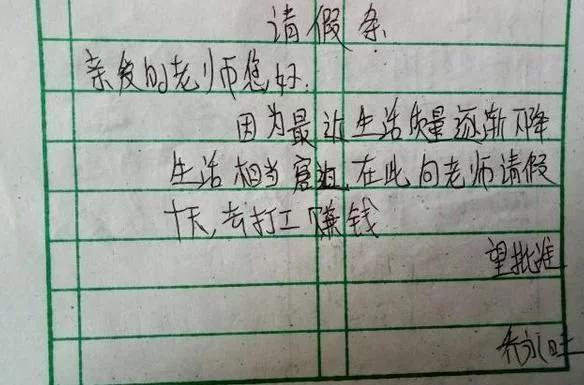 请假条
亲爱的老师您好.
因为最近生活质量逐渐下降
生活相当窘迫,在此向老师请假
十天,去打工赚钱
望批准